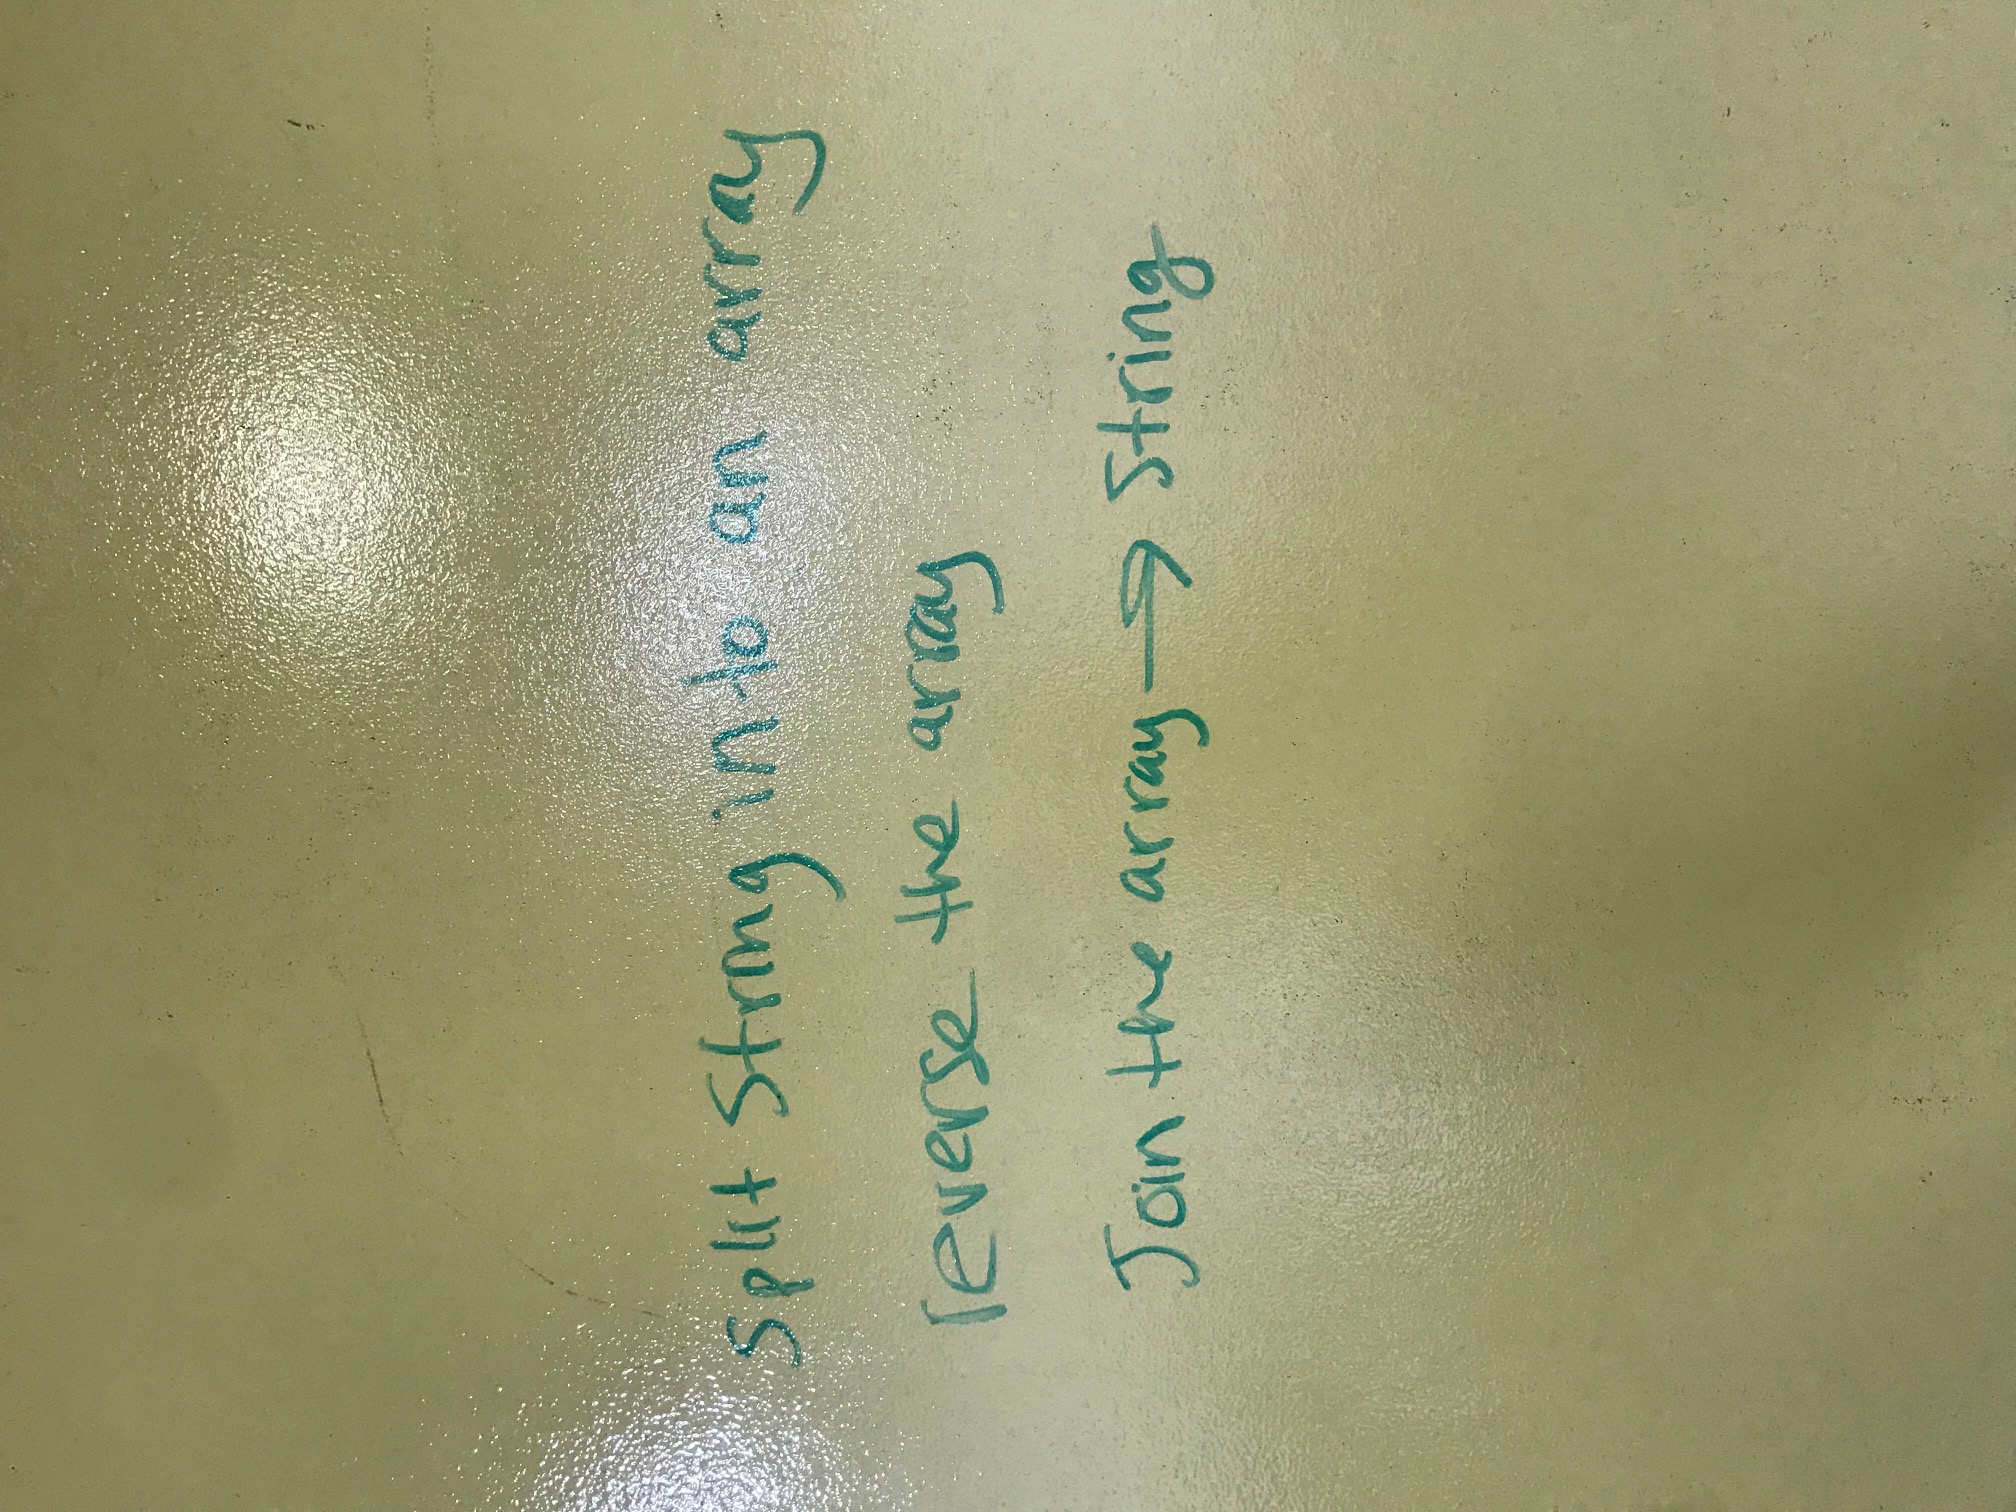 Split String into an array
reverse the array
Join the array → String